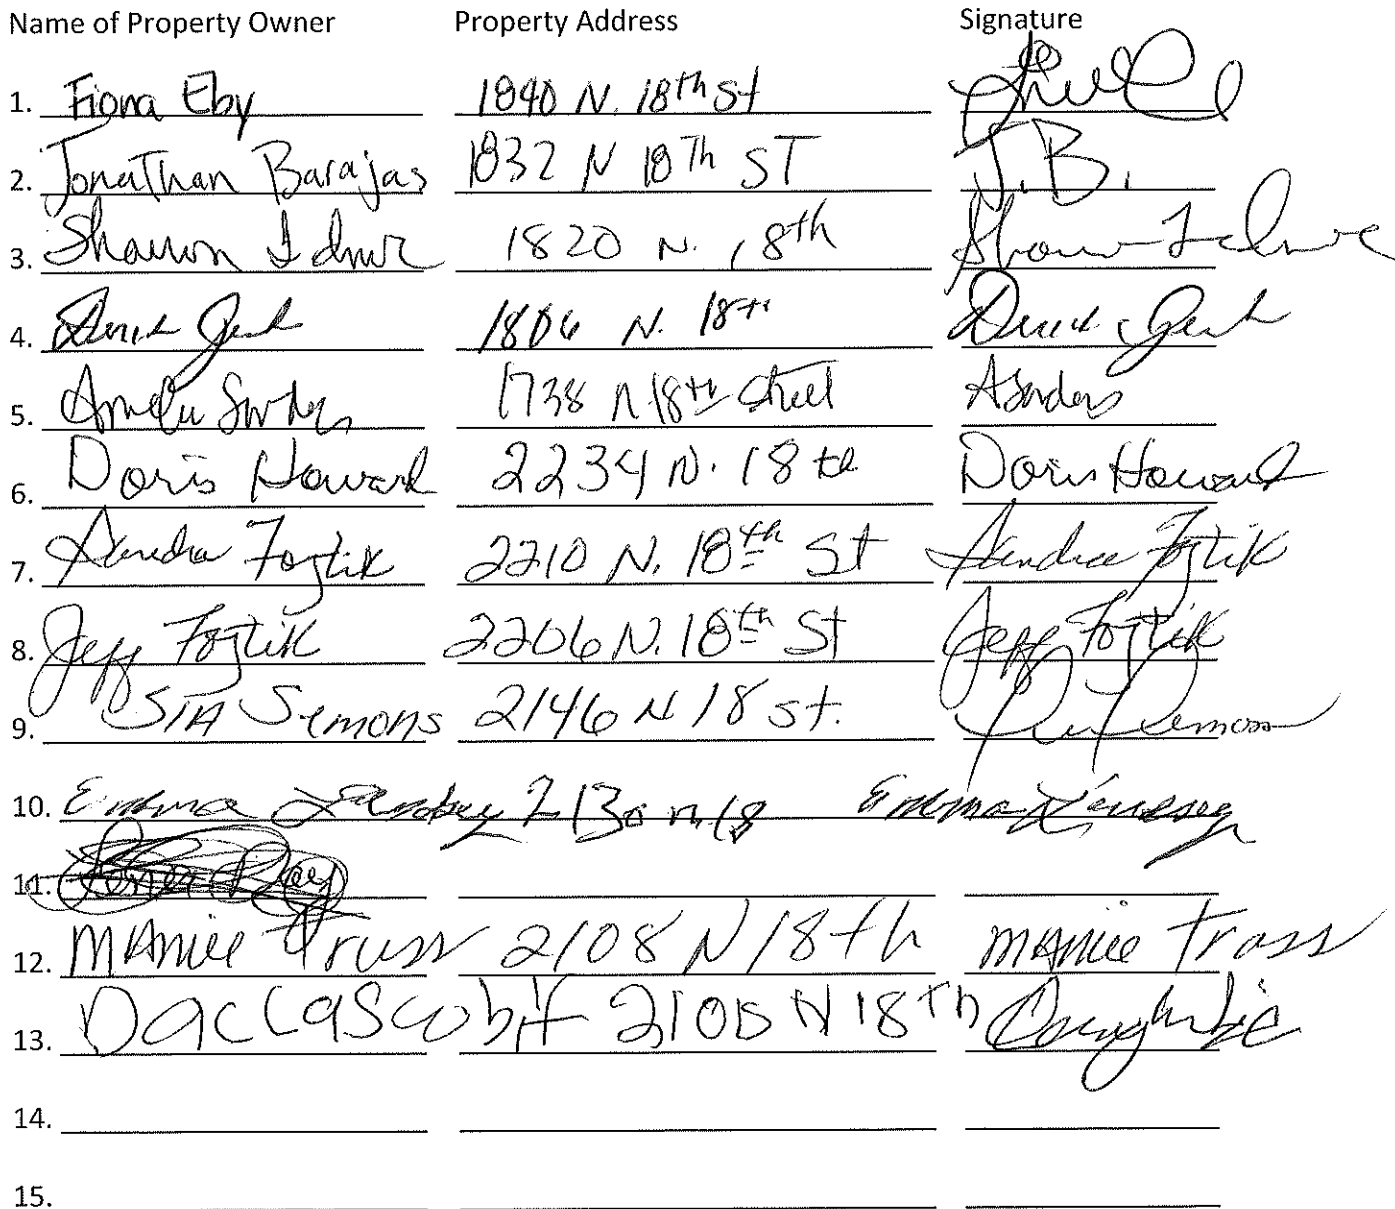 Name of Property Owner Property Address Signature
1. Fiona Eby 1840 N. 18th St
2. Jonathan Barajas 1832 N 18Th ST J.B.
3. Sharron 1820 N. 18th
4. Derek 1806 N. 18th Derek
5. 1738 N 18th Street ASanders
6. Doris Howard 2234 N. 18th Doris Howard
7. Sandra Fojtik 2210 N. 18th St Sandra Fojtik
8. Jeff Fojtik 2206 N. 18th St Jeff Fojtik
9. SIA Semons 2146 N 18 St.
10. Emma 2130 N. 18 Emma
11.
12. MAmie Truss 2108 N 18th MAmie Truss
13. N 18Th
14.
15.